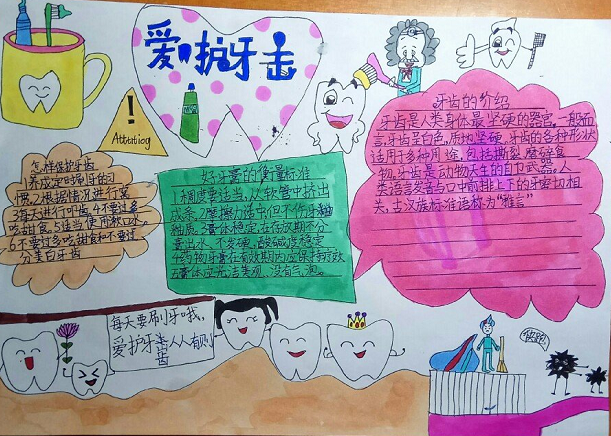 爱护牙击
Attatiog
怎样保护牙齿
1养成定时刷牙的习
惯,2.根据情况进行窝
3每天进行叩齿,4不要过多
吃甜食,5适当使用漱口水
6.不要过多吃甜食和不要过
分美白牙齿
好牙膏的衡量标准
1.稠度要适当,从软管中挤出
成条,2.摩擦力适中但不伤牙釉
釉质.3.膏体稳定,在存放期不分
量出水,不发硬,酸碱度稳定
4药物牙膏在有效期内应保持疗效
5.膏体应光洁美观,没有气泡。
牙齿的介绍
牙齿是人类身体最坚硬的器官,一般而
言,牙齿呈白色,质地坚硬,牙齿的各种形状
适用于多种用途,包括撕裂、磨碎食
物,牙齿是动物天生的自卫武器。人
类语言发音与口中前排上下的牙密切相
关,古汉族标准语称为"雅言"
每天要刷牙哦,
爱护牙齿人人有责
齿
快跑